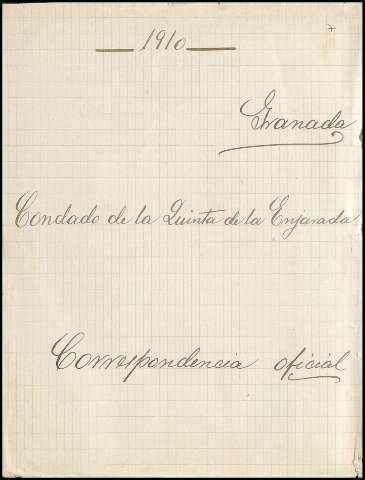 7
— 1910 —
Granada
Condado de la Quinta de la Enjarada
Correspondencia oficial